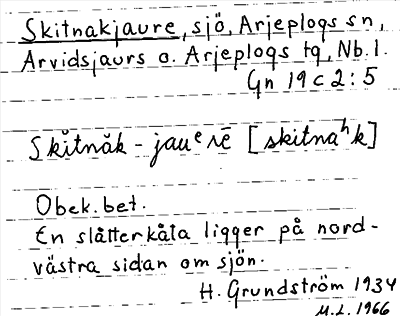 Skitnakjaure, sjö, Arjeplogs sn,
Arvidsjaurs o. Arjeplogs tg, Nb. l.
Gn 19 c 2:5
Skı̊tnåk - jauᵉrē [skitnaʰk]
Obek. bet.
En slåtterkåta ligger på nord-
västra sidan om sjön.
H. Grundström 1934
M.L. 1966